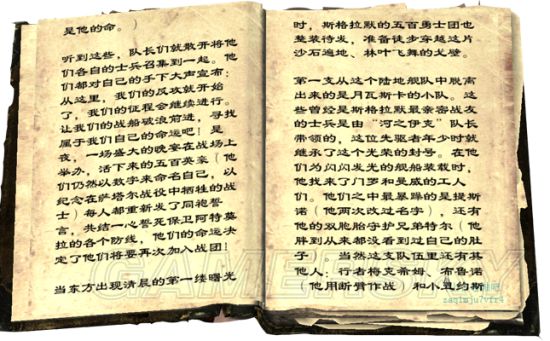 是他的命。）
听到这些，队长们就散开将他
们各自的士兵召集到一起。他
们都对自己的手下大声宣布：
从这里，我们的反攻就开始
了，我们的征程会继续进行。
让我们的战船破浪前进，寻找
属于我们自己的命运吧！是
夜，一场盛大的晚宴在战场上
举办，活下来的五百英豪（他
们仍然以数字来命名自己，以
纪念在萨塔尔战役中牺牲的战
士）每人都重新发了同袍誓
言，共结一心誓死保卫阿特莫
拉的各个防线，他们的命运决
定了他们将要再次加入战团！
当东方出现清晨的第一缕曙光
时，斯格拉默的五百勇士团也
整装待发，准备徒步穿越这片
沙石遍地、林叶飞舞的戈壁。
第一支从这个陆地舰队中脱离
出来的是月瓦斯卡的小队。这
些曾经是斯格拉默最亲密战友
的士兵是由“河之伊克”队长
带领的，这位先驱者年少时就
继承了这个光荣的封号。在他
们为闪闪发光的舰船装载时，
他找来了门罗和曼威的工人
们。他们之中最暴躁的是提斯
诺（他两次改过名字），还有
他的双胞胎守护兄弟特尔（他
胖到从来都没看到过自己的肚
子）。当然这支队伍里还有其
他人：行者将克希姆、布鲁诺
（他用断臂作战 和小丑约斯
GAMERSKY
zaqlmju7vfr4